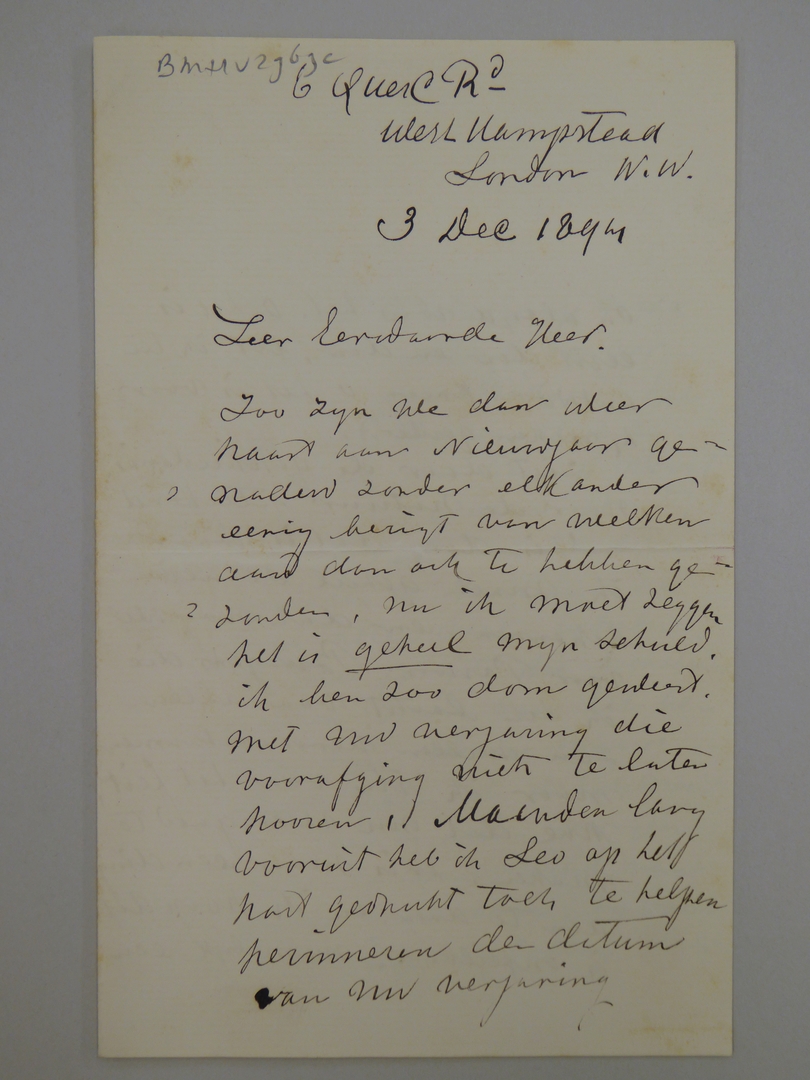 BMHV2963c
6 Quex Rd
West Hampstead
London N.W.
3 Dec 1894
Zeer Eerwaarde Heer.
Zoo zyn we dan weer
haast aan Nieuwjaar ge-
naderd zonder elkander
eenig berigt van welken
aard dan ook te hebben ge-
zonden, nu ik moet zeggen
het is geheel myn schuld.
ik ben zoo dom geweest.
met uw verjaring die
voorafging niets te laten
hooren, Maanden lang
vooruit heb ik Leo op het
hart gedrukt toch te helpen
herinneren den datum
van uw verjaring